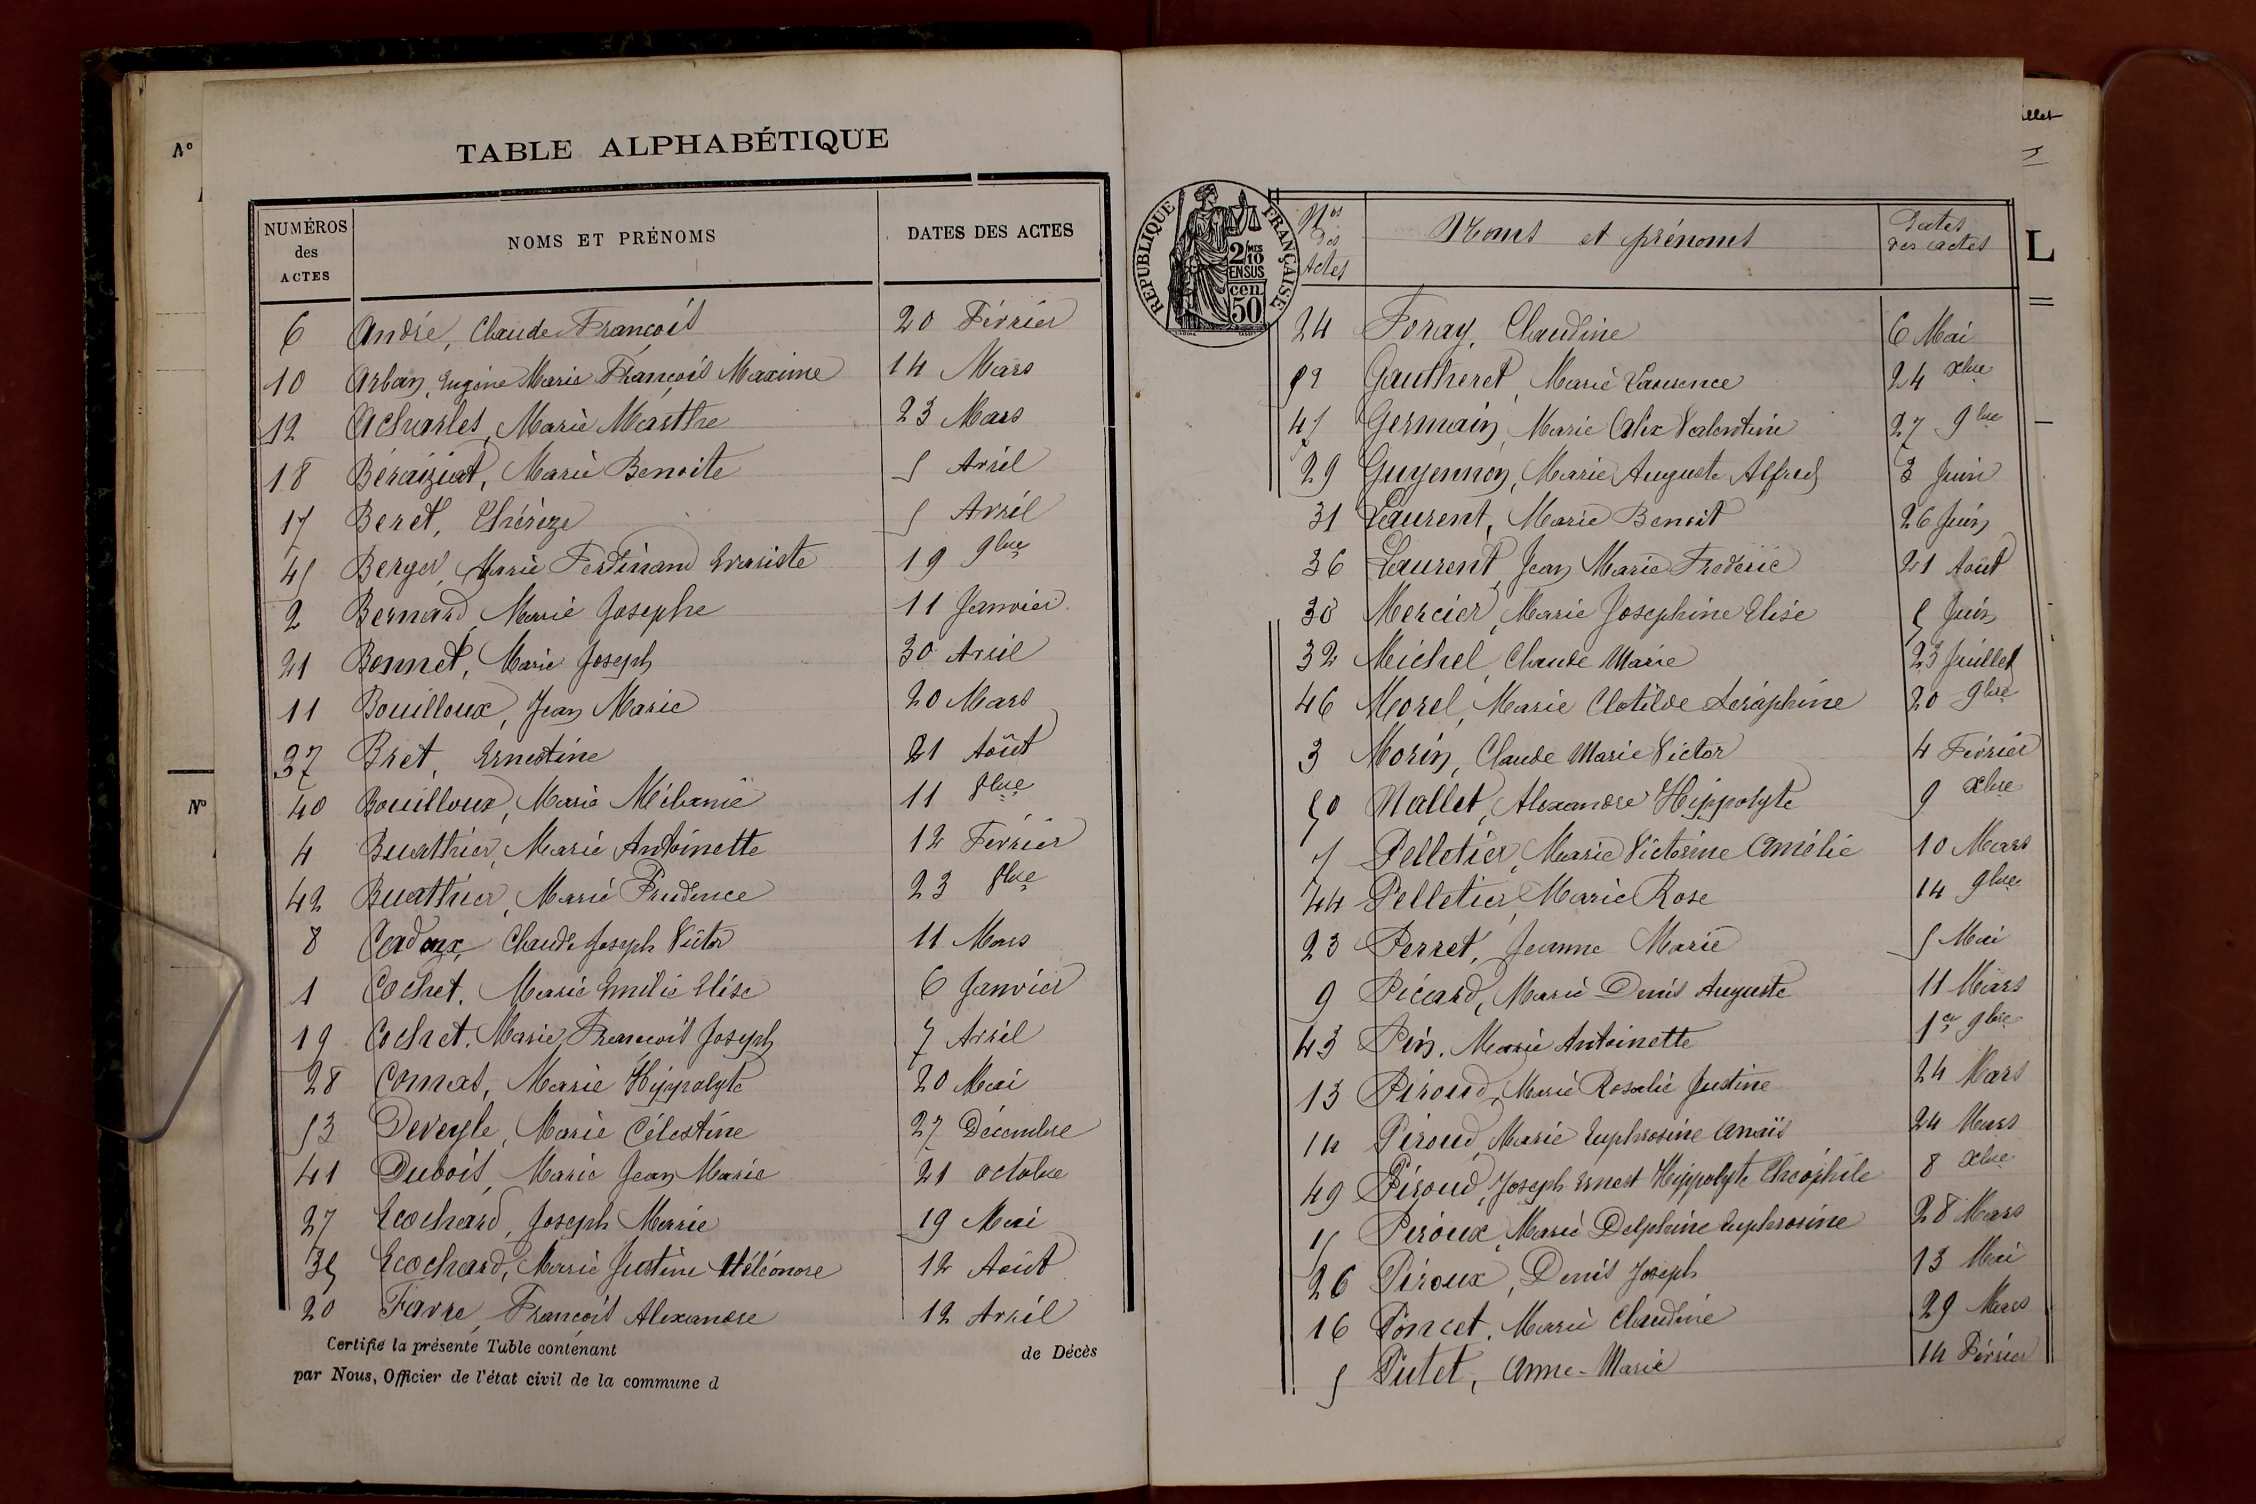 TABLE ALPHABÉTIQUE
NUMÉROS des ACTES NOMS ET PRÉNOMS DATES DES ACTES
6 André, Claude François 20 Février
10 Arban, Eugène Marie François Maxime 14 Mars
12 Acharles, Marie Marthe 23 Mars
18 Béraiziat, Marie Benoite 5 Avril
17 Beret, Thérèze 5 Avril
45 Berger, Marie Ferdinand Evariste 19 9bre
2 Bernard, Marie Josephe 11 Janvier
21 Bonnet, Marie Joseph 30 Avril
11 Bouilloux, Jean Marie 20 Mars
37 Bret, Ernestine 21 Août
40 Bouilloux, Marie Mélanie 11 8bre
4 Buathier, Marie Antoinette 12 Février
42 Buathier, Marie Prudence 23 8bre
8 Cadoux, Claude Joseph Victor 11 Mars
1 Cochet, Marie Emilie Elise 6 Janvier
19 Cochet, Marie François Joseph 7 Avril
28 Comas, Marie Hippolyte 20 Mai
53 Deveyle, Marie Célestine 27 Décembre
41 Dubois, Marie Jean Marie 21 octobre
27 Ecochard, Joseph Marie 19 Mai
35 Ecochard, Marie Justine Héléonore 12 Août
20 Favre, François Alexandre 12 Avril
Certifié la présente Table contenant de Décès
par Nous, Officier de l'état civil de la commune d
RÉPUBLIQUE FRANÇAISE
2/10 MES
EN SUS
50 cen
Nos des Actes Noms et prénoms Dates des actes
24 Foray, Claudine 6 Mai
52 Gautheret, Marie Laurence 24 xbre
47 Germain, Marie Alix Valentine 27 9bre
29 Guyennon, Marie Auguste Alfred 3 Juin
31 Laurent, Marie Benoit 26 Juin
36 Laurent, Jean Marie Frédéric 21 Août
30 Mercier, Marie Josephine Elise 5 Juin
32 Michel, Claude Marie 23 Juillet
46 Morel, Marie Clotilde Séraphine 20 9bre
3 Morin, Claude Marie Victor 4 Février
50 Nallet, Alexandre Hippolyte 9 xbre
7 Pelletier, Marie Victorine Amélie 10 Mars
44 Pelletier, Marie Rose 14 9bre
23 Perret, Jeanne Marie 5 Mai
9 Picard, Marie Denis Auguste 11 Mars
43 Pin, Marie Antoinette 1er 9bre
13 Piroud, Marie Rosalie Justine 24 Mars
14 Piroud, Marie Euphrosine Anaïs 24 Mars
49 Piroud, Joseph Ernest Hippolyte Théophile 8 xbre
15 Piroux, Marie Delphine Euphrosine 28 Mars
26 Piroux, Denis Joseph 13 Mai
16 Poncet, Marie Claudine 29 Mars
5 Putet, Anne-Marie 14 Février